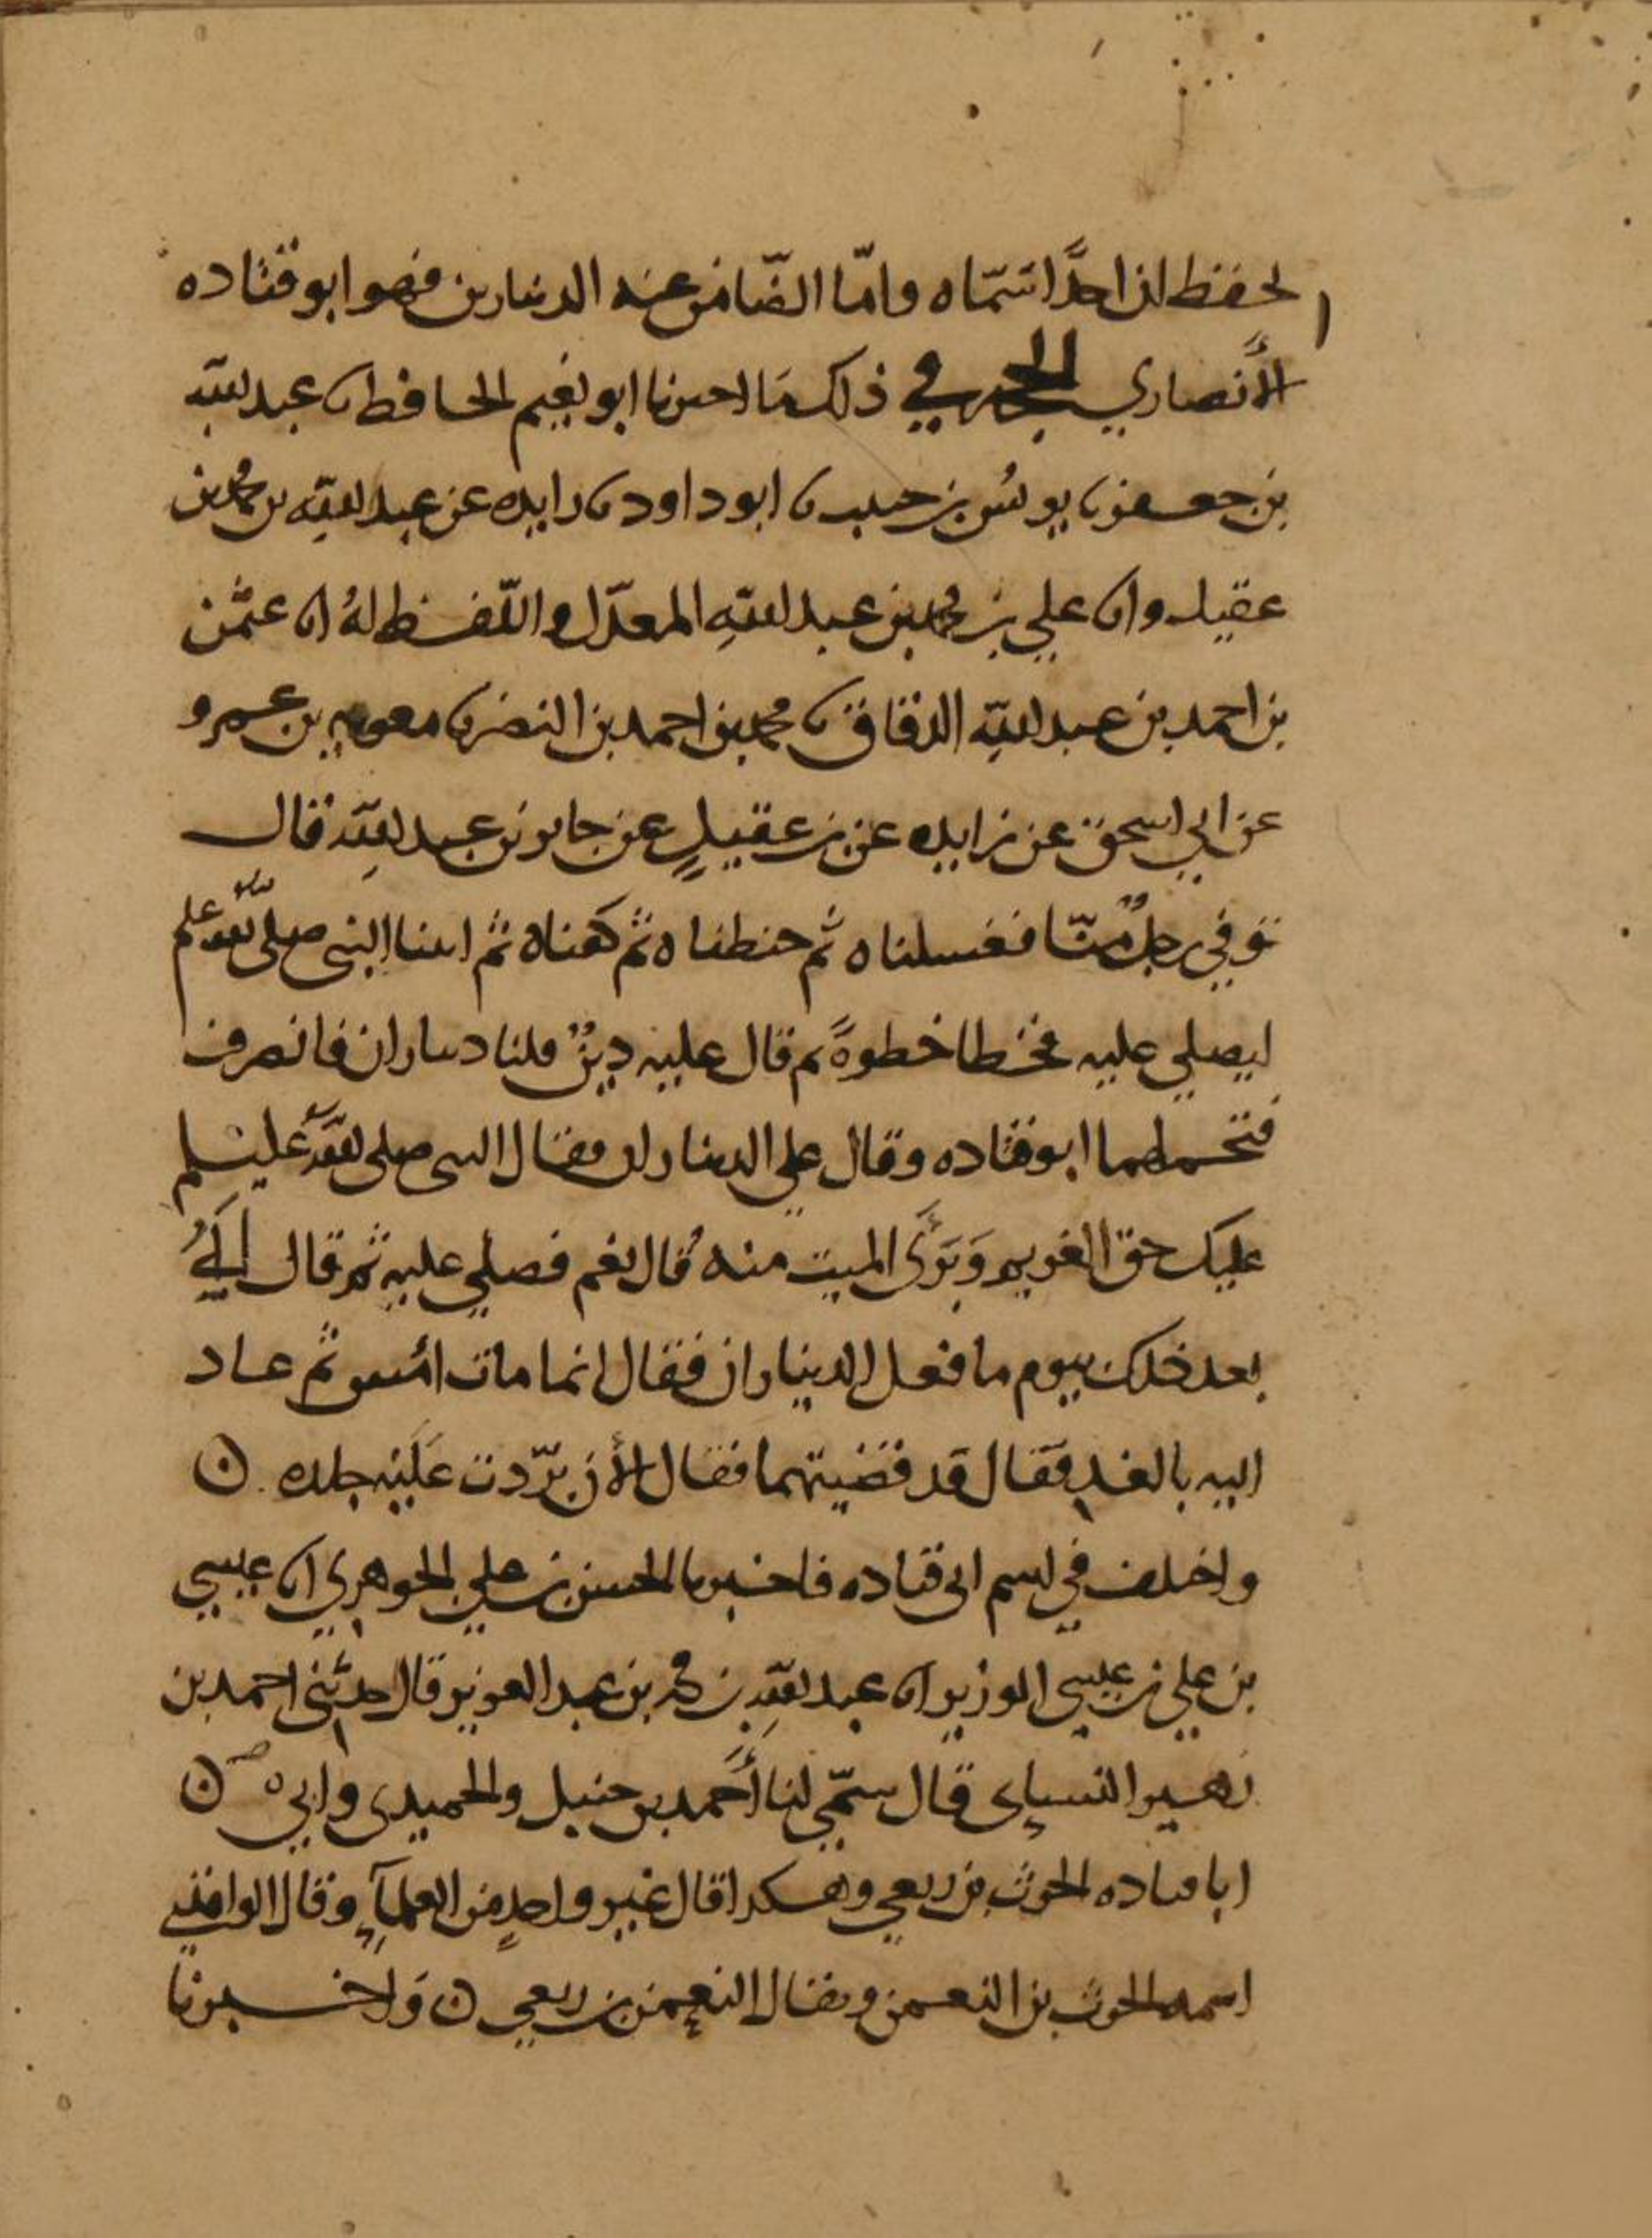 احفظ ان احدًا سماه وامّا الضّامن عنه الدينارين فهو ابو قتاده
الأنصاري الحجه في ذلك مَا اخبرنا ابو نعيم الحافظ نا عبد الله
بن جعفر نا يونس بن حبيب نا ابو داود نا زايده عن عبد الله بن محمد بن
عقيل وانا علي بن محمد بن عبد الله المعدّل واللّفظ لهُ انا عثمن
بن احمد بن عبد الله الدقاق نا محمد بن احمد بن النضر نا معويه بن عمرو
عن ابي اسحق عن زايده عن بن عقيلٍ عن جابر بن عبد الله قال
توفي رجلٌ منّا فغسلناه ثم حنطناه ثم كفناه ثم اتينا النبي صلى الله عليه وسلم
ليصلي عليه فخطا خطوةً ثم قال عليه دينٌ قلنا ديناران فانصرف
فتحملهما ابو قتاده وقال علي الديناران فقال النبي صلى الله عليه وسلم
عليك حق الغريم وَبَرئَ الميت منه قال نعم فصلي عليه ثم قال لَهُ
بعد ذلك بيوم ما فعل الديناران فقال انما مات امس ثم عاد
اليه بالغدِ فقال قد قضيتهما فقال الأن برّدت عَلَيْه جلده ن
واختلف في اسم ابي قتاده فاخبرنا الحسن بن علي الجوهري انا عيسي
بن علي بن عيسي الوزير انا عبد الله بن محمد بن عبد العزيز قال حدثني احمد بن
زهير النسايى قال سمّي لنا أَحمد بن حنبل والحميدى وابي ن
ابا قتاده الحرث بن ربعي وهكذا قال غير واحدٍ من العلمآءِ وقال الواقدي
اسمه الحرث بن النعمن ويقال النعمن بن ربعي ن وَاخبرنا